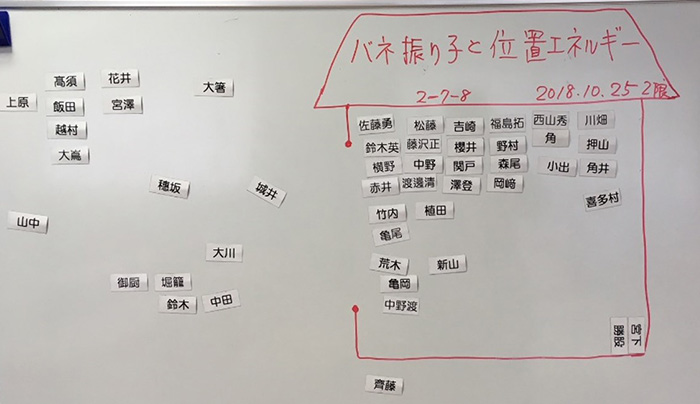 バネ振り子と位置エネルギー
2-7-8 2018.10.25 2限
髙須 花井 大箸
上原 飯田 宮澤
越村
大嶌
穂坂 城井
山中
大川
御厨 堀籠
鈴木 中田
佐藤勇 松藤 吉崎 福島拓 西山秀 川畑
鈴木英 藤沢正 櫻井 野村 角 押山
横野 中野 関戸 森尾 小出 角井
赤井 渡邊清 澤登 岡﨑 喜多村
竹内 植田
亀尾
荒木 新山
亀岡
中野渡
宮下
齊藤